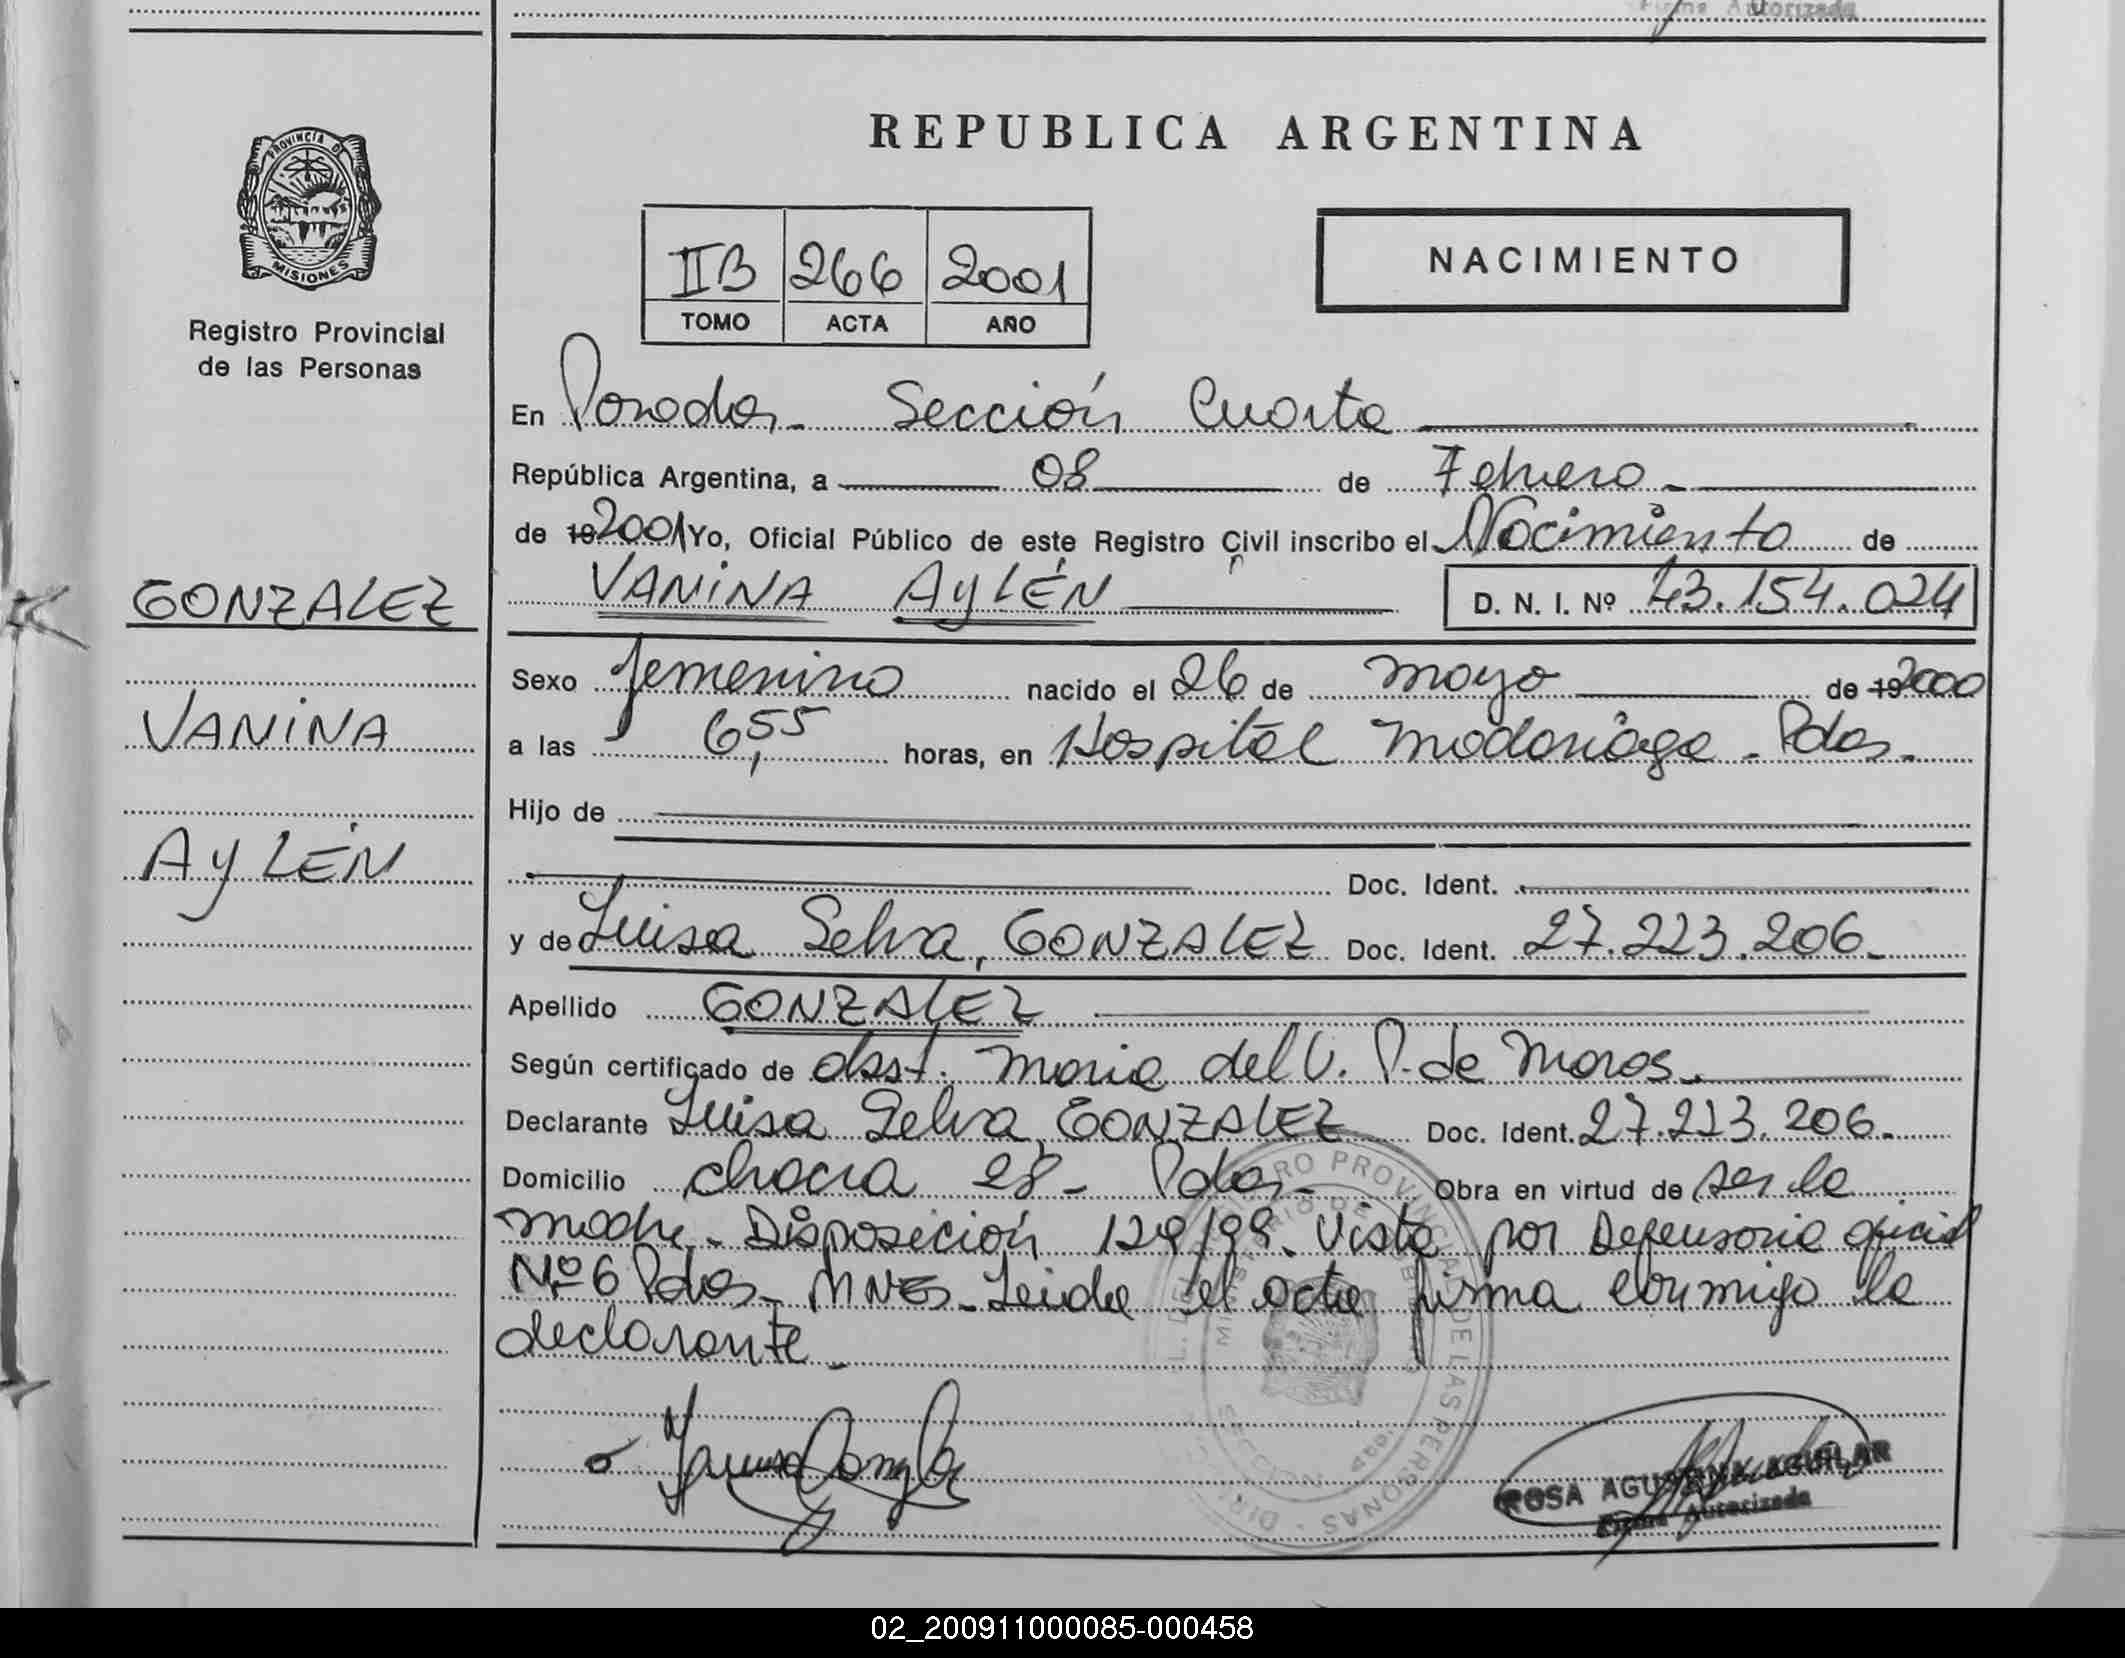 Firma Autorizada
PROVINCIA DE
MISIONES
Registro Provincial
de las Personas
REPUBLICA ARGENTINA
IIB 266 2001
TOMO ACTA AÑO
NACIMIENTO
En Posadas - Sección Cuarta
República Argentina, a 08 de Febrero -
de 19 2001 Yo, Oficial Público de este Registro Civil inscribo el Nacimiento de
VANINA AYLÉN D. N. I. Nº 43.154.024
GONZALEZ
VANINA
AYLÉN
Sexo femenino nacido el 26 de mayo de 19 2000
a las 6,55 horas, en Hospital Madariaga - Pdas.
Hijo de
Doc. Ident.
y de Luisa Selva, GONZALEZ Doc. Ident. 27.223.206.-
Apellido GONZALEZ
Según certificado de obst. Maria del V. P. de Maros.
Declarante Luisa Selva, GONZALEZ Doc. Ident. 27.223.206.-
Domicilio chacra 28 - Pdas.- Obra en virtud de ser la
madre.- Disposición 129/99. Vista por Defensoria oficial
Nº 6 Pdas.- MNES.- Leida el acta firma conmigo la
declarante.-
ROSA AGUSTINA AGUILAR
Firma Autorizada
02_200911000085-000458